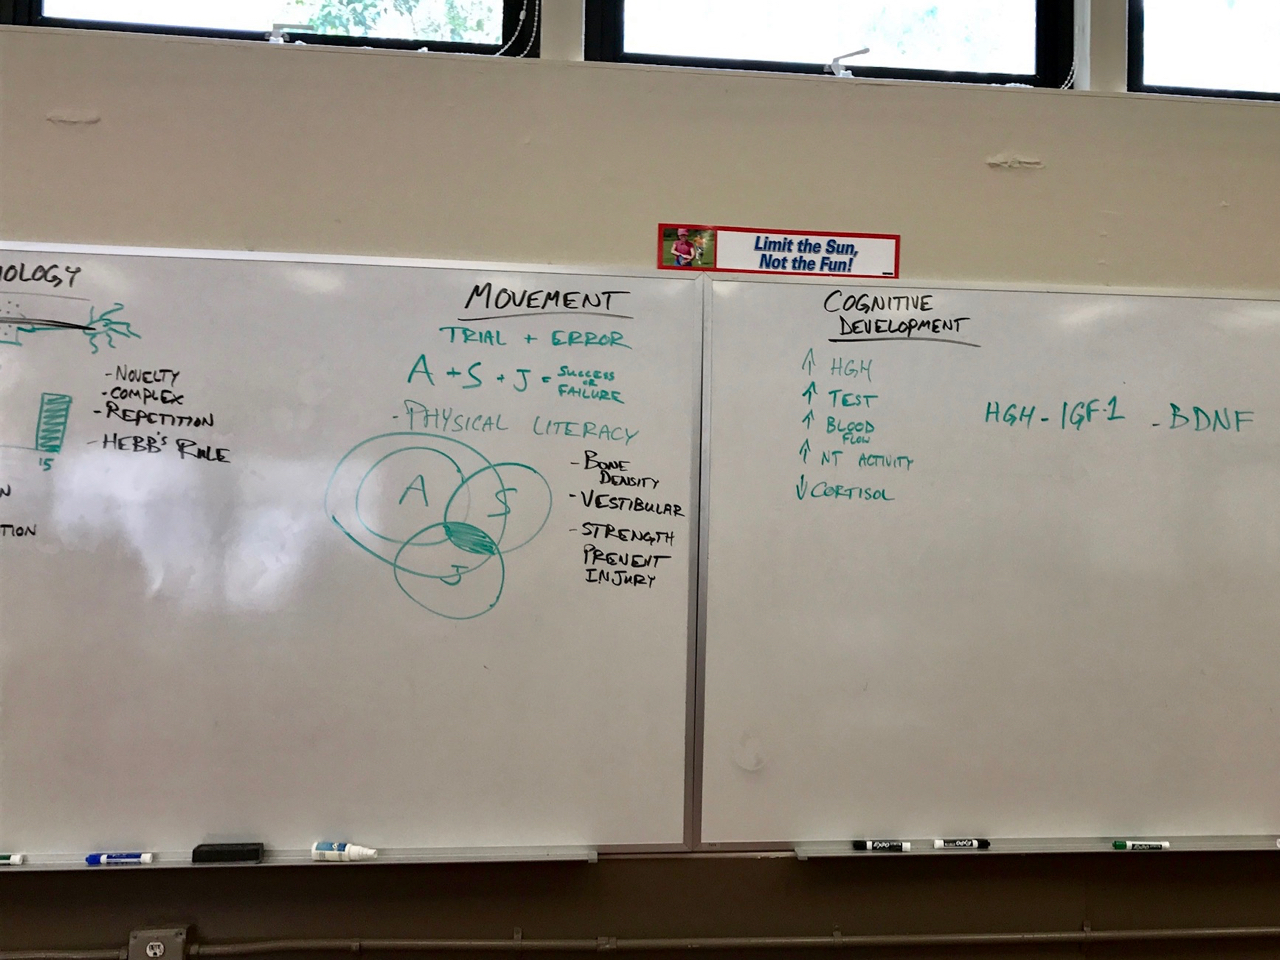 Limit the Sun,
Not the Fun!
OLOGY
- NOVELTY
- COMPLEX
- REPETITION
- HEBB'S RULE
15
N
TION
MOVEMENT
TRIAL + ERROR
A + S + J = SUCCESS
OR
FAILURE
- PHYSICAL LITERACY
A
S
J
- BONE
DENSITY
- VESTIBULAR
- STRENGTH
PREVENT
INJURY
COGNITIVE
DEVELOPMENT
↑ HGH
↑ TEST
↑ BLOOD
FLOW
↑ NT ACTIVITY
↓ CORTISOL
HGH - IGF-1 - BDNF
EXPO
EXPO